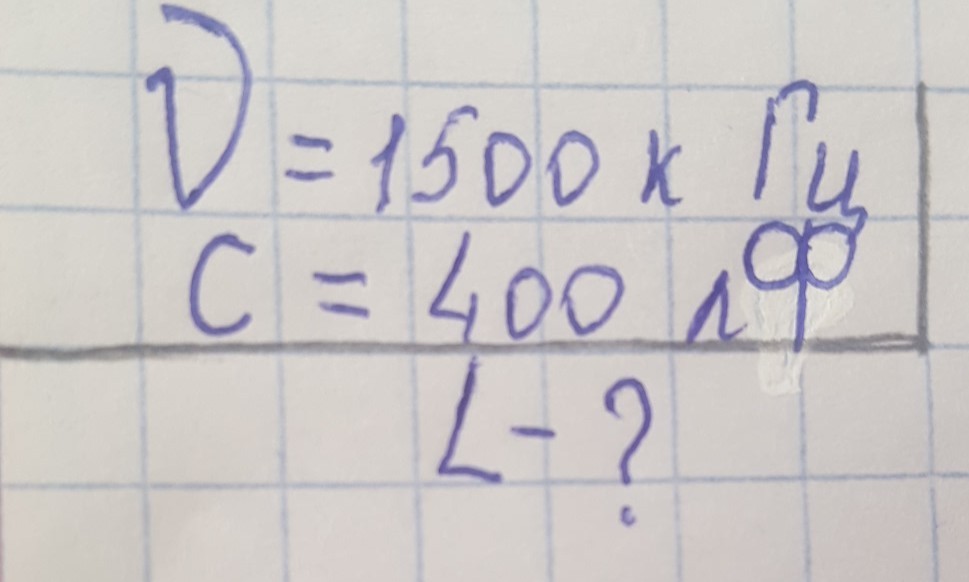 ν = 1500 к Гц
C = 400 пФ
L - ?